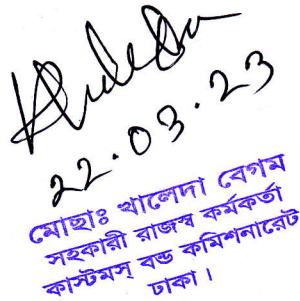 Khaleda
22.03.23
মোছাঃ খালেদা বেগম
সহকারী রাজস্ব কর্মকর্তা
কাস্টমস্ বন্ড কমিশনারেট
ঢাকা।